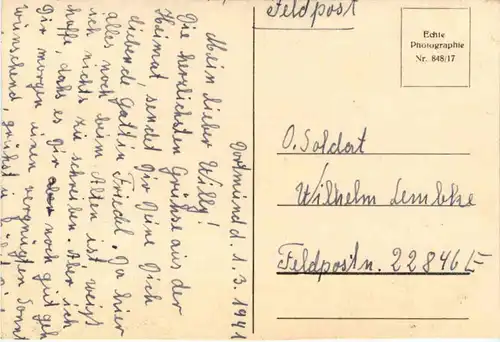 Dortmund d. 1.3.1941
Mein lieber Willy!
Die herzlichsten Grüße aus der
Heimat, sendet Dir Deine Dich
liebende Gattin Friedel. Da hier
alles noch beim Alten ist, weiß
ich nichts zu schreiben. Aber ich
hoffe, daß es Dir noch gut geh
Dir morgen einen vergnügten Sonnt
wünschend, grüßt u.
Feldpost
Echte
Photographie
Nr. 848/17
O. Soldat
Wilhelm Lembke
Feldpostn. 22846 E